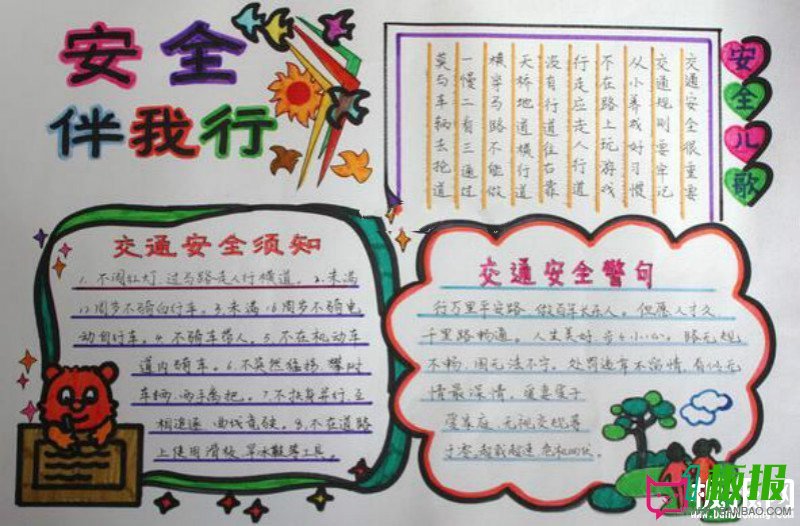 安全
伴我行
安全儿歌
交通安全很重要
交通规则要牢记
从小养成好习惯
不在路上玩游戏
行走应走人行道
没有行道往右靠
天桥地道横行道
横穿马路不能做
一慢二看三通过
莫与车辆去抢道
交通安全须知
1.不闯红灯,过马路走人行横道。2.未满
12周岁不骑自行车。3.未满16周岁不骑电
动自行车。4.不骑车带人。5.不在机动车
道内骑车。6.不突然猛拐、攀附
车辆,两手离把。7.不扶身并行,互
相追逐,曲线竞驶。8.不在道路
上使用滑板、旱冰鞋等工具。
交通安全警句
行万里平安路,做百年长在人。但愿人才久,
千里路畅通。人生美好,步步小心。路无规
不畅,国无法不宁。处罚违章不留情,看似无
情最深情。爱妻爱子
爱家庭,无视交规等
于零。超载超速,危机四伏。
撒报